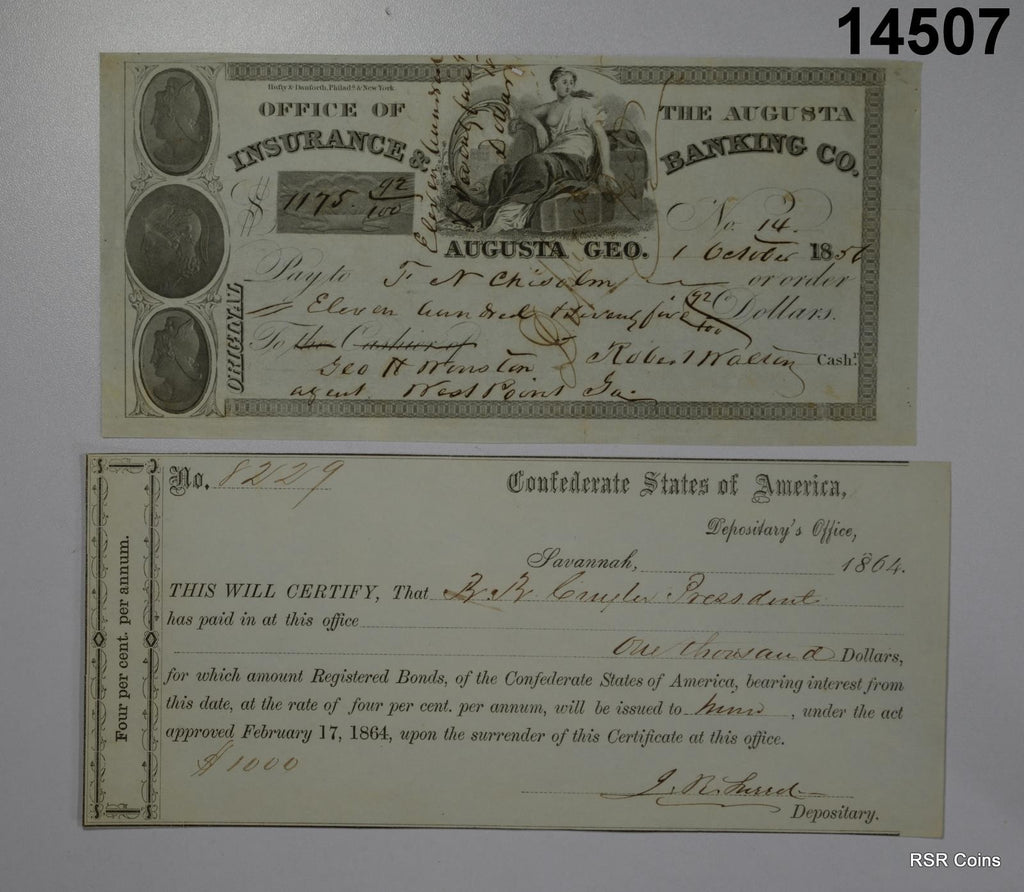 14507
Hufly & Danforth, Philadᵃ & New York
OFFICE OF THE AUGUSTA
INSURANCE & BANKING CO.
$ 1175. 92/100
No. 14.
AUGUSTA GEO. 1 October 1856
Pay to F N Chisolm or order
Eleven hundred & seventy five 92/100 Dollars.
To the Cashier of Robert Walton Cash.ʳ
Geo H Winston
agent West Point Ga
ORIGINAL
No. 8229
Confederate States of America,
Depositary's Office,
Savannah, 1864.
THIS WILL CERTIFY, That R. R. Cuyler President
has paid in at this office
One thousand Dollars,
for which amount Registered Bonds, of the Confederate States of America, bearing interest from
this date, at the rate of four per cent. per annum, will be issued to him, under the act
approved February 17, 1864, upon the surrender of this Certificate at this office.
$1000
Depositary.
Four per cent. per annum.
RSR Coins